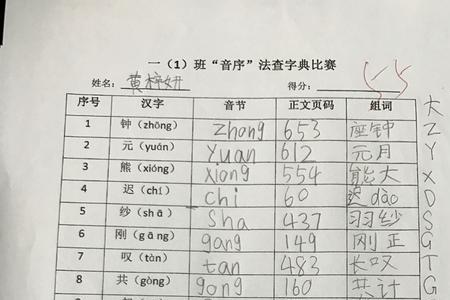 一（1）班“音序”法查字典比赛
姓名： 黄梓妍 得分： 55
序号 汉字 音节 正文页码 组词 大
1 钟（zhōng） zhong 653 座钟 Z
2 元（yuán） yuan 612 元月 Y
3 熊（xióng） xiong 554 能大 X
4 迟（chí） chi 60 迟dào D
5 纱（shā） sha 437 羽纱 S
6 刚（gāng） gang 149 刚正 G
7 叹（tàn） tan 483 长叹 T
8 共（gòng） gong 160 共计 G